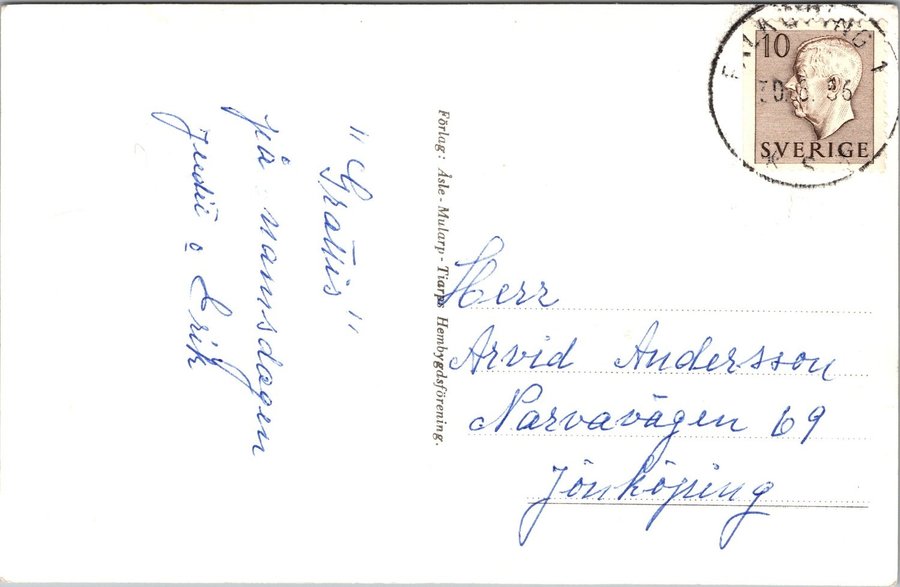 "Grattis"
på namsdagen
Judit o Erik
Förlag: Åsle - Mularp - Tiarps Hembygdsförening.
FALKÖPING 1
10
SVERIGE
Herr
Arvid Andersson
Narvavägen 69
Jönköping